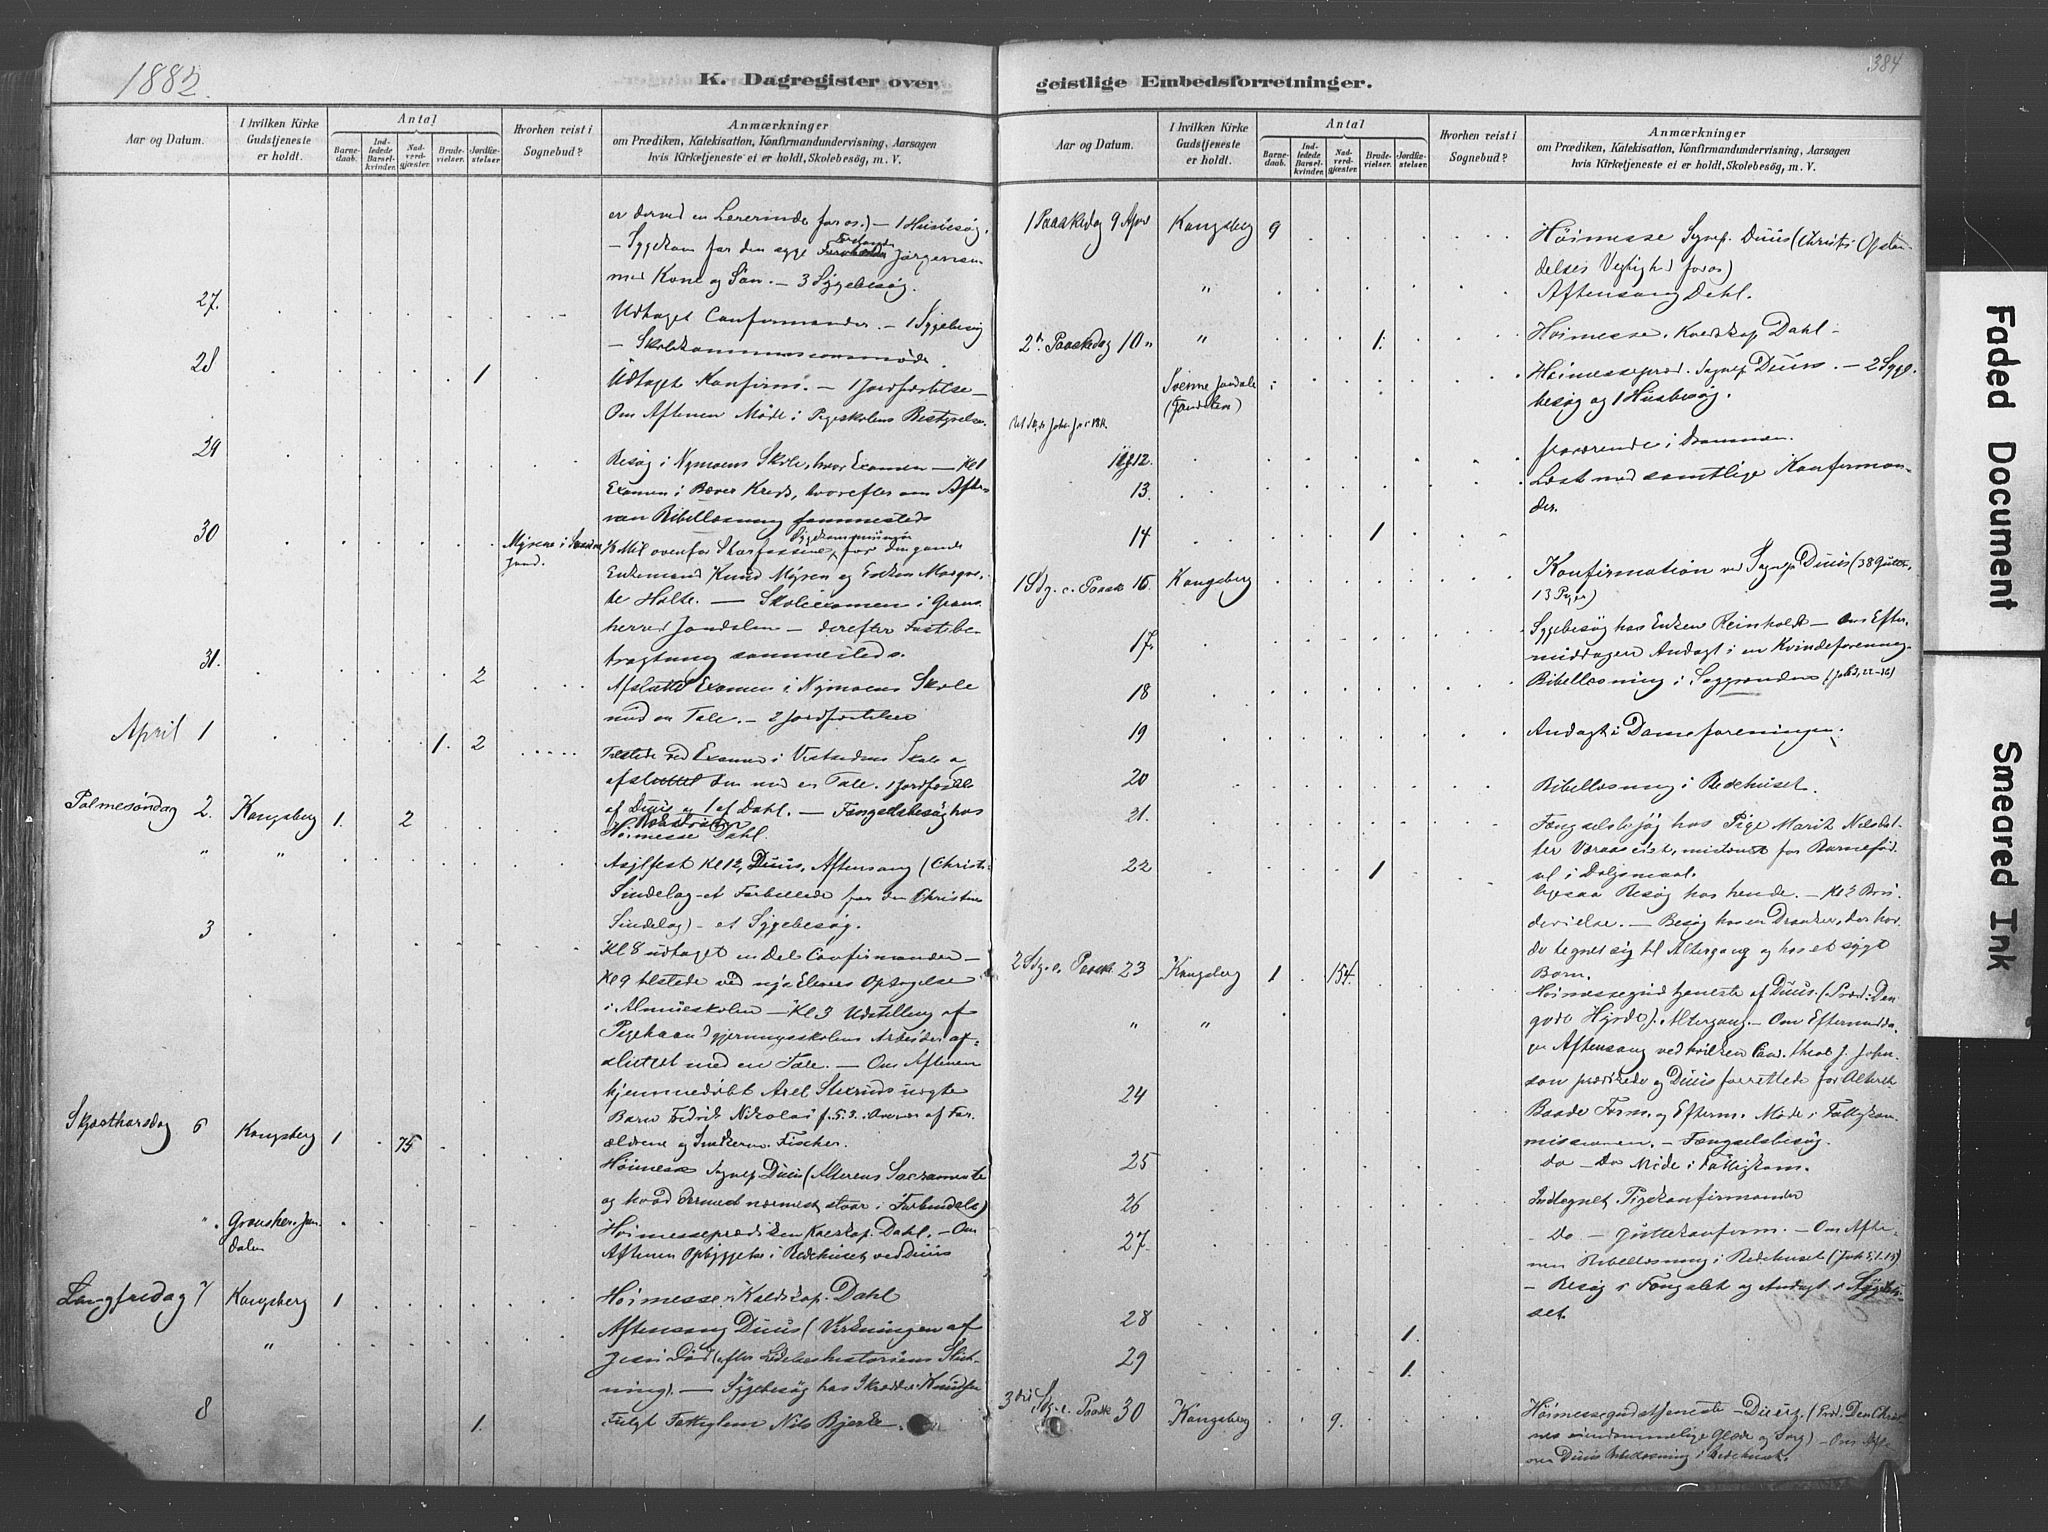 1882.
K. Dagregister over
Aar og Datum.
I hvilken Kirke Gudstjeneste er holdt.
Antal
Barnedaab.
Indledede Barselkvinder.
Nadverdgjæster.
Brudevielser.
Jordfæstelser
Hvorhen reist i Sognebud?
Anmærkninger
om Prædiken, Katekisation, Konfirmandundervisning, Aarsagen
hvis Kirketjeneste ei er holdt, Skolebesøg, m. V.
er derved en Lærerinde for os.) – 1 Huusbesøg.
– Sygekom for den syge Jørgensen
med Kone og Søn. – 3 Sygebesøg.
27.
Udtaget Confirmander. – 1 Sygebesøg
– Skolekommissionsmøde
28 1
Udtaget Konfirm. – 1 Jordfæstelse –
Om Aftenen Møde i Pigeskolens Bestyrelse.
29
Besøg i Nymoens Skole, hvor Examen – Kl 1
Examen i Bæver Kreds, hvorefter om Afte-
nen Bibellæsning sammesteds
30
½ Mil ovenfor for den gamle
Enkemand Knud Mysen og Enken Margre-
te Holte. – Skoleexamen i Grans-
herred Jondalen – derefter Fastebe-
tragtning sammesteds.
31. 2
Afsluttet Examen i Nymoens Skole
med en Tale. – 2 Jordfæstelser
April 1 1. 2
Tilstede ved Examen i Vestsidens Skole og
afsluttet den med en Tale. 1 Jordfæstelse
af Duus og 1 af Dahl. – Fængselsbesøg hos
Palmesøndag 2. Kongsberg 1. 2
Høimesse Dahl.
" "
Asylfest Kl 12, Duus, Aftensang (Christi
Sindelag et Forbillede for den Christnes
Sindelag) – et Sygebesøg.
3
Kl 8 udtaget en Del Confirmander –
Kl 9 tilstede ved nye Elevers Optagelse
i Almueskolen – Kl 3 Udstilling af
Pigehaandgjerningsskolens Arbeider af-
sluttet med en Tale. – Om Aftenen
hjemmedøbt Axel Stixruds uægte
Barn Fredrik Nikolai f. 5.3. Overvær af For-
ældrene og Snedkerm. Fischer.
Skjærthorsdag 6 Kongsberg 1 75
Høimesse Sognep Duus (Alterens Sacramente
og hvad dermed nærmest staar i Forbindelse)
". Gransher. Jon-
dalen
Høimesseprædiken Kaldskap. Dahl. – Om
Aftenen Opbyggelse i Bedehuset ved Duus
Langfredag 7 Kongsberg 1
Høimesse Kaldskap. Dahl
"
Aftensang Duus (Virkningen af
Jesu Død) efter Lidelseshistoriens Slut-
ning). – Sygebesøg hos Skrædder Knudsen
8 1.
Fulgt Fattiglem Nils Bjerke.
384
geistlige Embedsforretninger.
Aar og Datum.
I hvilken Kirke Gudstjeneste er holdt.
Antal
Barnedaab.
Indledede Barselkvinder.
Nadverdgjæster.
Brudevielser.
Jordfæstelser.
Hvorhen reist i Sognebud?
Anmærkninger
om Prædiken, Katekisation, Konfirmandundervisning, Aarsagen
hvis Kirketjeneste ei er holdt, Skolebesøg, m. V.
1 Paaskedag 9 April Kongsberg 9
Høimesse Sognep. Duus (Christi Opstan-
delses Vigtighed for os)
"
Aftensang Dahl.
2n Paaskedag 10n " 1.
Høimesse. Kaldskap Dahl –
Svenne Jondalen
(Jondalen)
Høimessepræd. Sognep Duus. – 2 Syge-
besøg og 1 Husbesøg.
11 og 12.
fraværende i Drammen.
13.
Læst med samtlige Konfirman-
der.
14 1
1 Sdg. e. Paaske 16. Kongsberg
Konfirmation ved Sognep Duus (38 Gutter,
13 Piger)
17.
Sygebesøg hos Enken Reinholdt – Om Efter-
middagen Andagt i en Kvindeforening
18
Bibellæsning i Saggrenden
19
Andagt i Dameforeningen.
20
Bibellæsning i Bedehuset.
21.
Fængselsbesøg hos Pige Marit Nilsdat-
ter Væraas eiet, mistænkt for Barnefød-
sel i Dølgsmaal.
22 1
ligesaa Besøg hos hende. – Kl 2 Bru-
devielse. – Besøg hos en Dranker, der hav-
de tegnet sig til Altergang og hos et sygt
Barn.
2 Sdg. e. Paaske 23 Kongsberg 1 154.
Høimessegudstjeneste af Duus. (Præd: Den
gode Hyrde). Altergang. – Om Eftermidda-
" "
gen Aftensang ved hvilken Cand. theol J. John-
son prædikede og Duus forrettede for Alteret
24
Baade Form. og Efterm. Møde i Fattigkom-
missionen. – Fængselsbesøg.
25
Do – Do Møde i Fattigkom.
26
Indtegnet Pigekonfirmander
27.
– Do – Guttekonfirm. – Om Afte-
nen Bibellæsning i Bedehuset (Joh 5, 1-15)
– Besøg i Fængslet og Andagt i Sygehu-
set.
28 1.
29 1.
3die Sdg. e. Paaske 30 Kongsberg 9.
Høimessegudstjeneste – Duus. (Præd. Den Christ-
nes eiendommelige Glæde og Sorg) – Om Aft-
enen Duus Bibellæsning i Bedehuset.
Faded Document
Smeared Ink